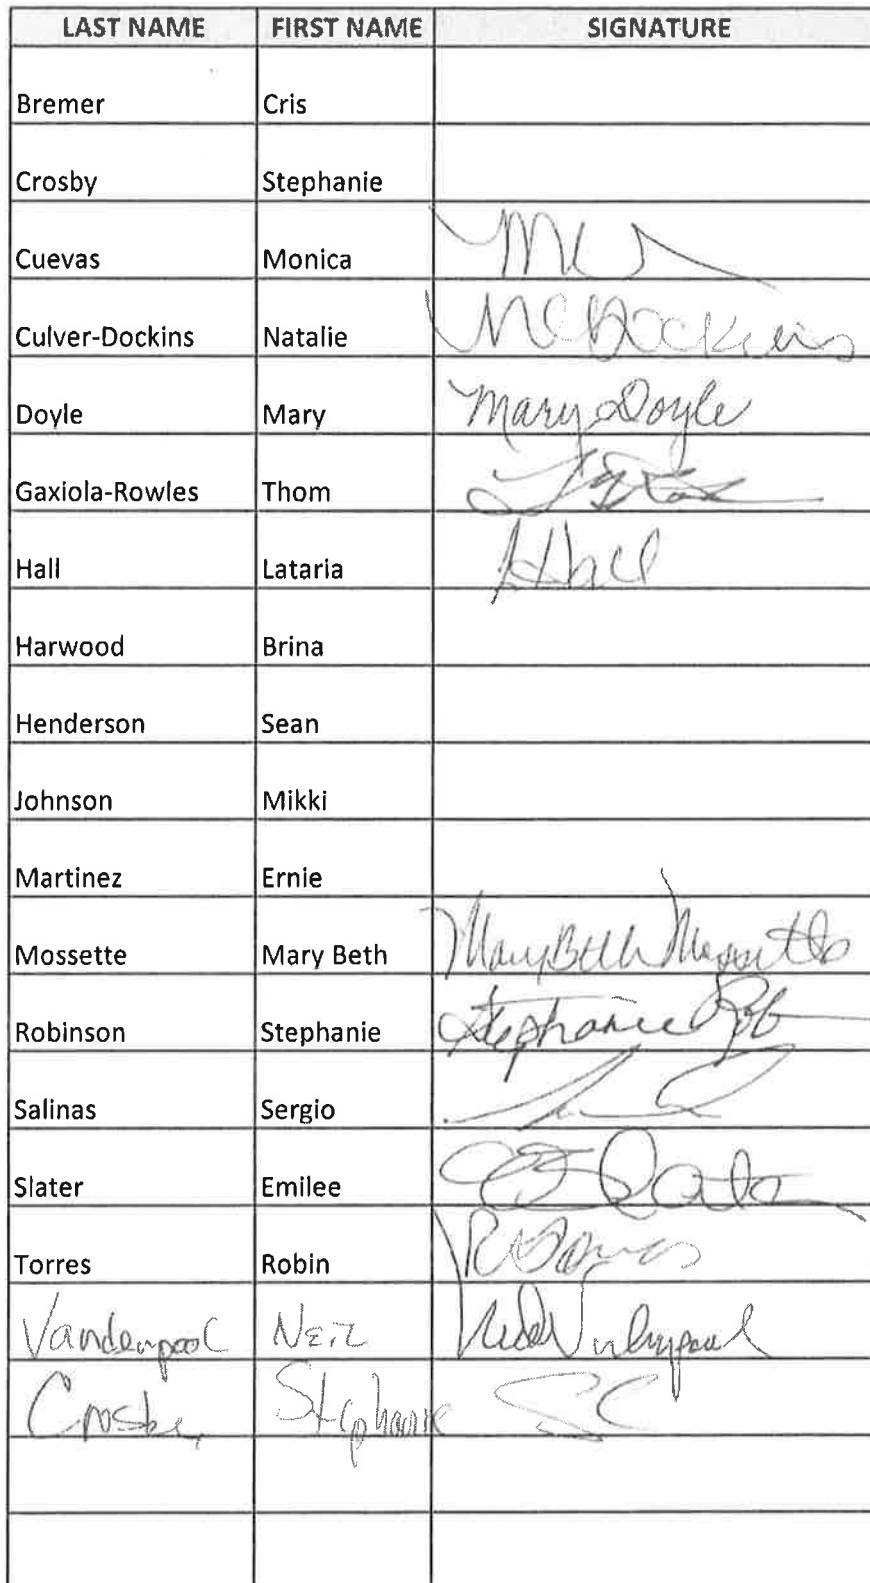 LAST NAME FIRST NAME SIGNATURE
Bremer Cris
Crosby Stephanie
Cuevas Monica
Culver-Dockins Natalie NCDockins
Doyle Mary Mary Doyle
Gaxiola-Rowles Thom
Hall Lataria LHall
Harwood Brina
Henderson Sean
Johnson Mikki
Martinez Ernie
Mossette Mary Beth Mary Beth Mossette
Robinson Stephanie Stephanie Rob
Salinas Sergio
Slater Emilee ESlater
Torres Robin RTorres
Vandenpool Neil
Crosby Stephanie SC